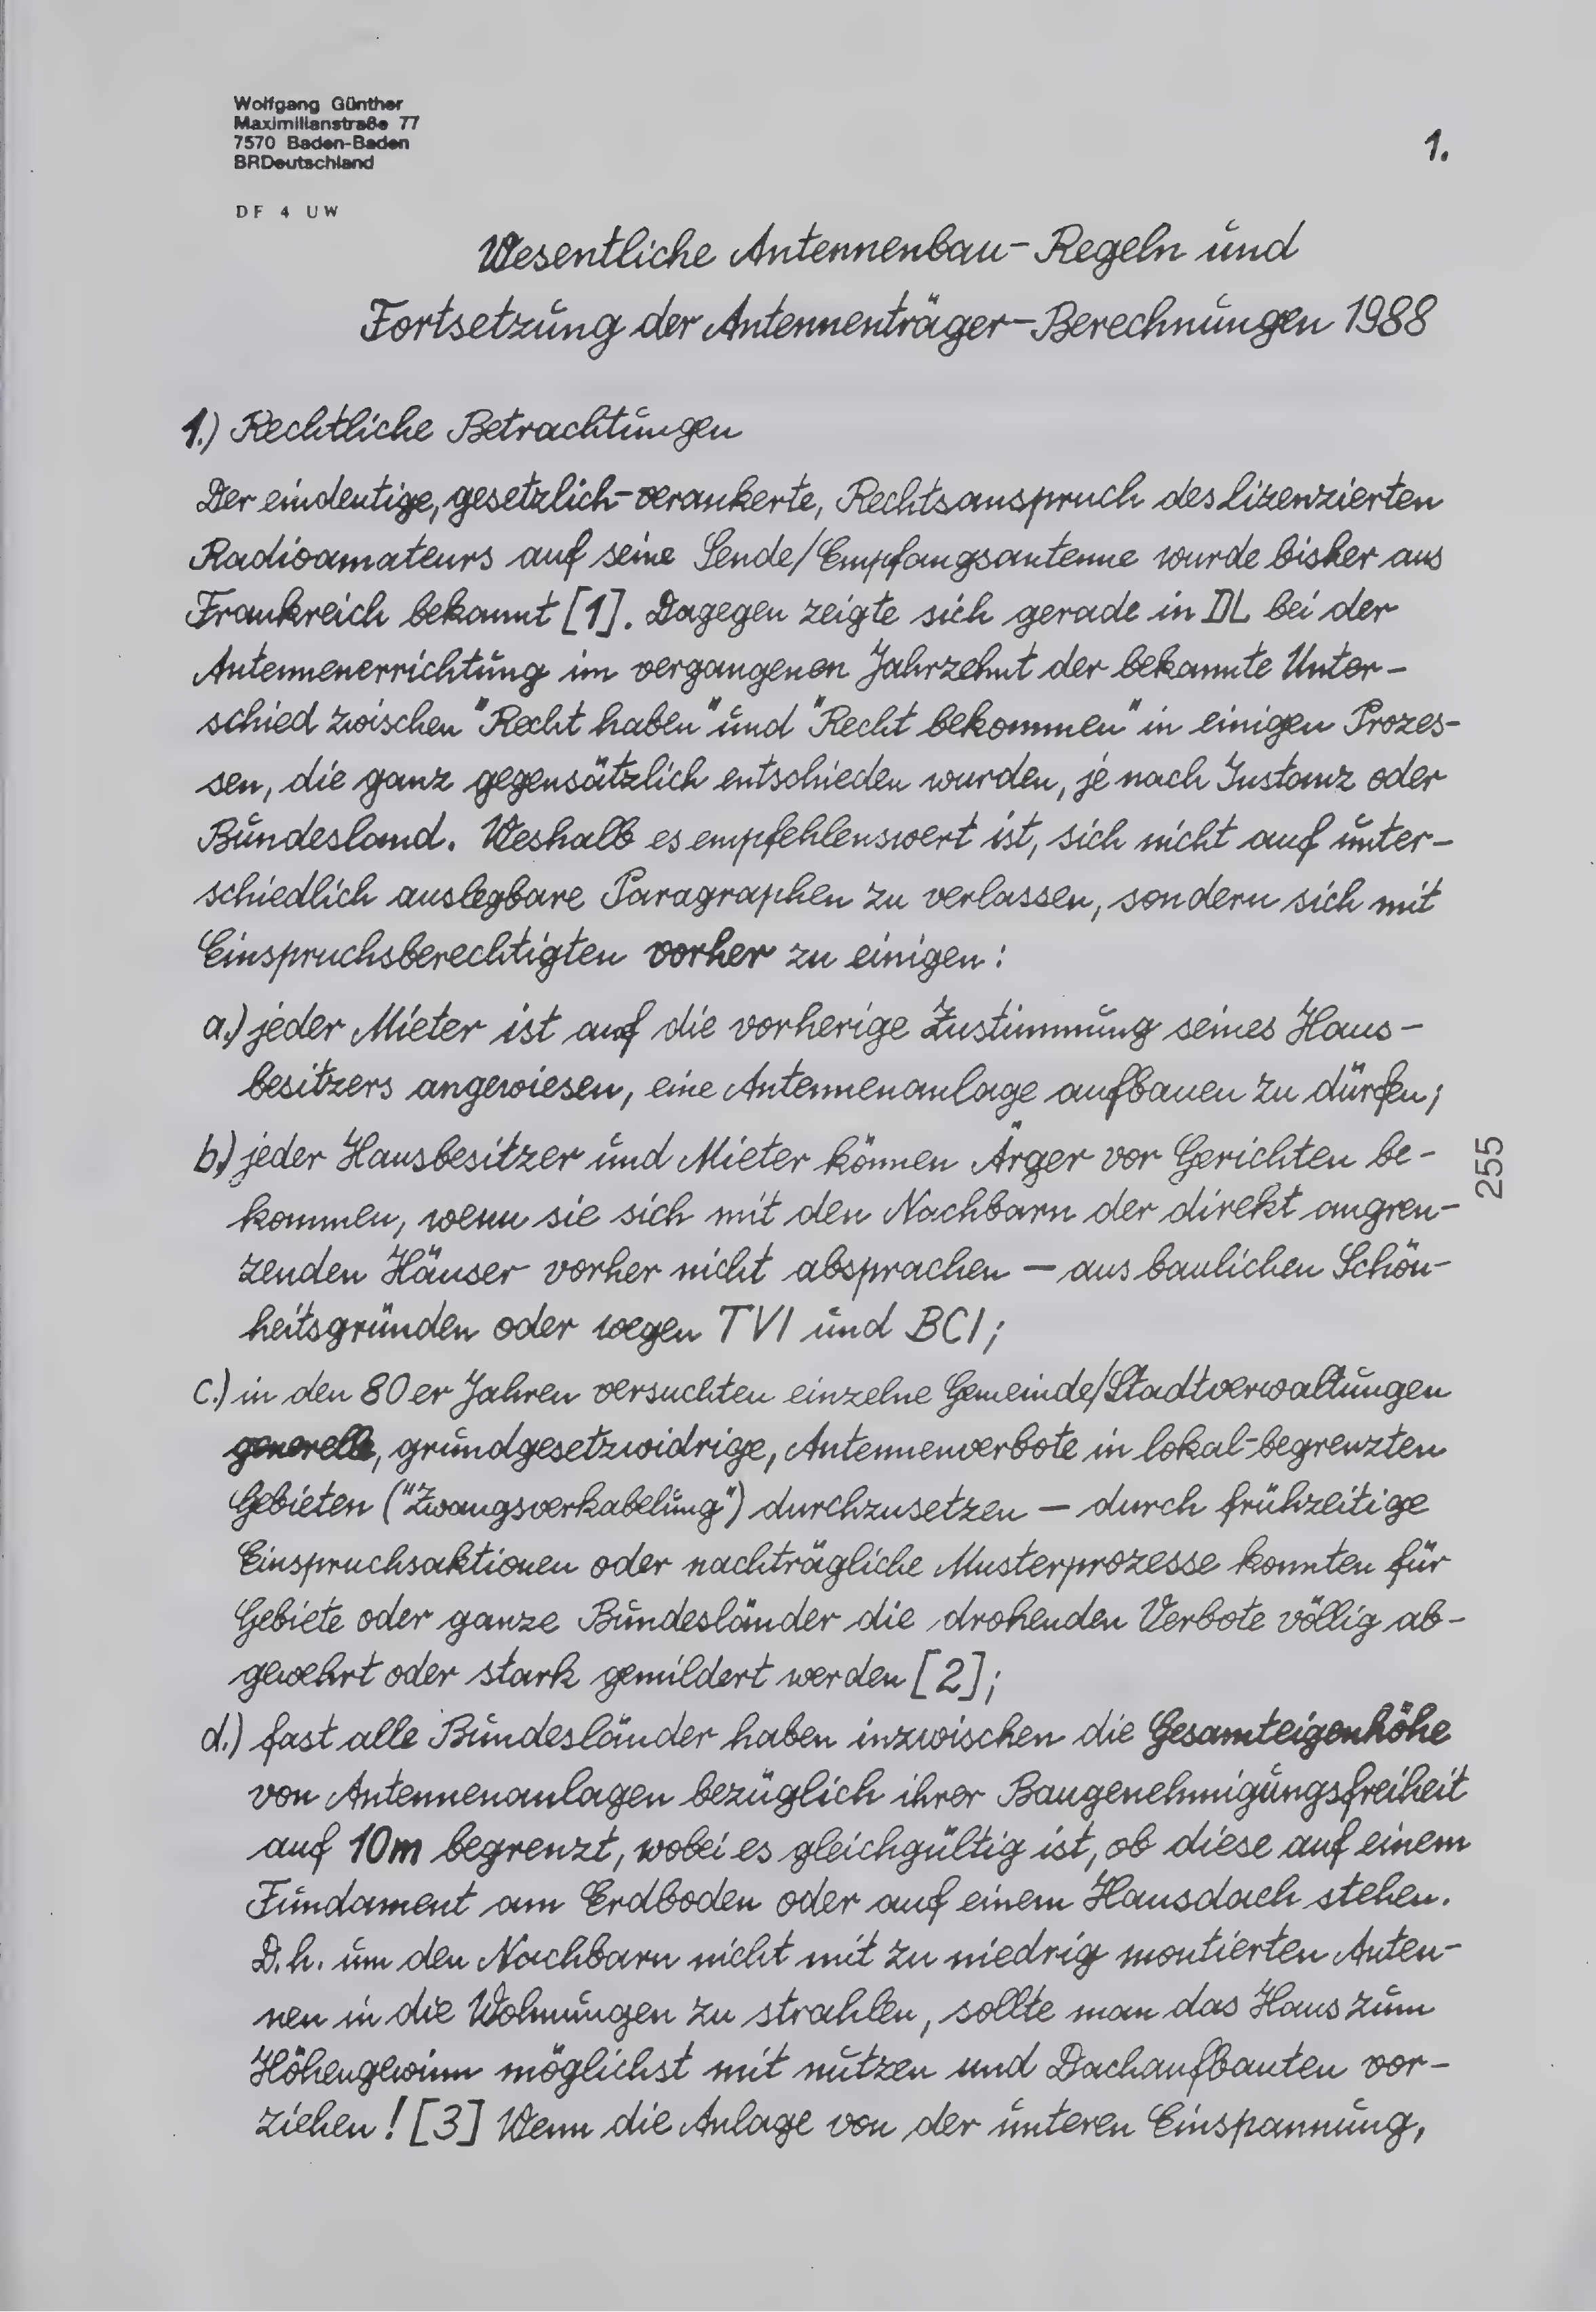 Wolfgang Günther
Maximilianstraße 77
7570 Baden-Baden
BRDeutschland
DF 4 UW
1.
Wesentliche Antennenbau-Regeln und
Fortsetzung der Antennenträger-Berechnungen 1988
1.) Rechtliche Betrachtungen
Der eindeutige, gesetzlich-verankerte, Rechtsanspruch des lizenzierten
Radioamateurs auf seine Sende/Empfangsantenne wurde bisher aus
Frankreich bekannt [1]. Dagegen zeigte sich gerade in DL bei der
Antennenerrichtung im vergangenen Jahrzehnt der bekannte Unter-
schied zwischen "Recht haben" und "Recht bekommen" in einigen Prozes-
sen, die ganz gegensätzlich entschieden wurden, je nach Instanz oder
Bundesland. Weshalb es empfehlenswert ist, sich nicht auf unter-
schiedlich auslegbare Paragraphen zu verlassen, sondern sich mit
Einspruchsberechtigten vorher zu einigen:
a.) jeder Mieter ist auf die vorherige Zustimmung seines Haus-
besitzers angewiesen, eine Antennenanlage aufbauen zu dürfen;
b.) jeder Hausbesitzer und Mieter können Ärger vor Gerichten be-
kommen, wenn sie sich mit den Nachbarn der direkt angren-
zenden Häuser vorher nicht absprachen – aus baulichen Schön-
heitsgründen oder wegen TVI und BCI;
c.) in den 80er Jahren versuchten einzelne Gemeinde/Stadtverwaltungen
generelle, grundgesetzwidrige, Antennenverbote in lokal-begrenzten
Gebieten ("Zwangsverkabelung") durchzusetzen – durch frühzeitige
Einspruchsaktionen oder nachträgliche Musterprozesse konnten für
Gebiete oder ganze Bundesländer die drohenden Verbote völlig ab-
gewehrt oder stark gemildert werden [2];
d.) fast alle Bundesländer haben inzwischen die Gesamteigenhöhe
von Antennenanlagen bezüglich ihrer Baugenehmigungsfreiheit
auf 10m begrenzt, wobei es gleichgültig ist, ob diese auf einem
Fundament am Erdboden oder auf einem Hausdach stehen.
D.h. um den Nachbarn nicht mit zu niedrig montierten Anten-
nen in die Wohnungen zu strahlen, sollte man das Haus zum
Höhengewinn möglichst mit nutzen und Dachaufbauten vor-
ziehen! [3] Wenn die Anlage von der unteren Einspannung,
255